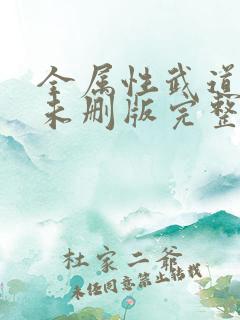 全属性武道
未删版完整
杜家二爷
未经同意禁止转载